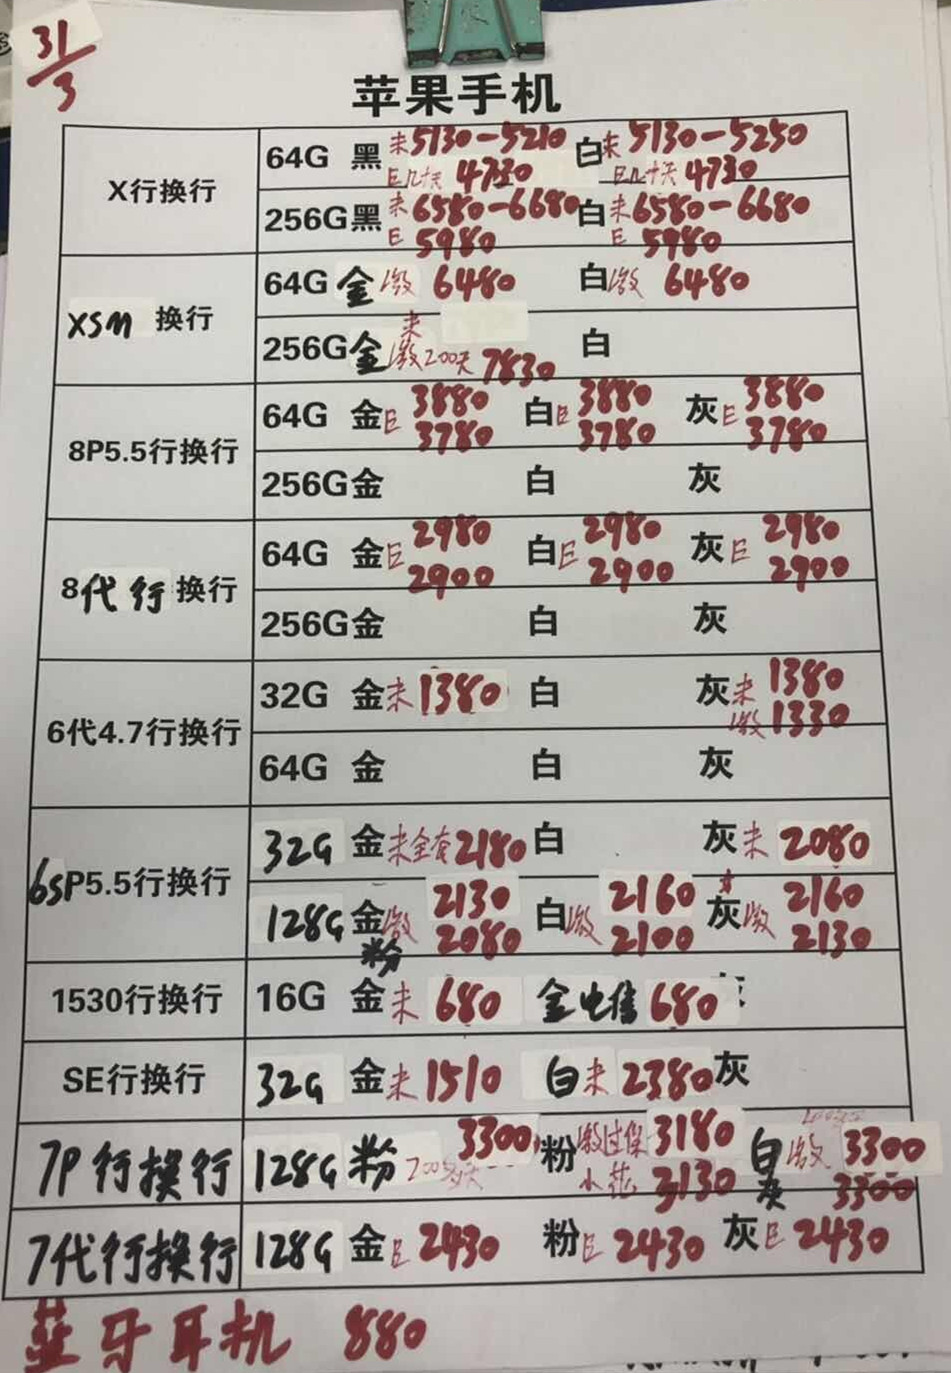 31/3
苹果手机
X行换行
64G 黑 未5130-5210 白未 5130-5250
4730 4730
256G黑 未6580-6680 白 未6580-6680
5980 5980
XSM 换行
64G 金 激 6480 白激 6480
256G金 未激200天 7830 白
8P5.5行换行
64G 金 3880 白 3880 灰 3880
3780 3780 3780
256G金 白 灰
8代行换行
64G 金 2980 白 2980 灰 2980
2900 2900 2900
256G金 白 灰
6代4.7行换行
32G 金未1380 白 灰未 1380
激1330
64G 金 白 灰
6SP5.5行换行
32G 金未全套2180 白 灰未 2080
128G 金激 2130 白激 2160 灰激 2160
粉 2080 2100 2130
1530行换行
16G 金未 680 金电信 680
SE行换行
32G 金未1510 白未 2380 灰
7P行换行
128G 粉 3300 粉激过保 3180 白激 3300
小花 3130 灰 3300
7代行换行
128G 金 2430 粉 2430 灰 2430
蓝牙耳机 880